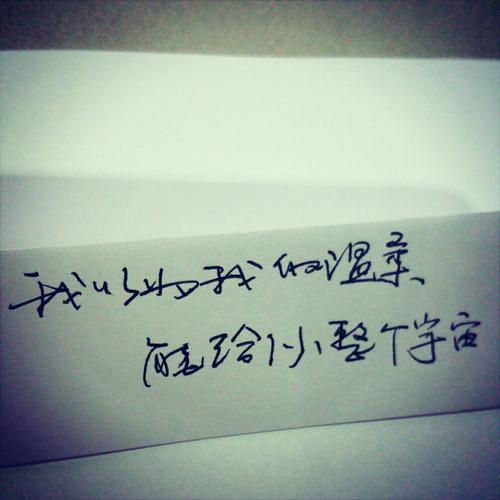 我以为我的温柔、
能给你整个宇宙